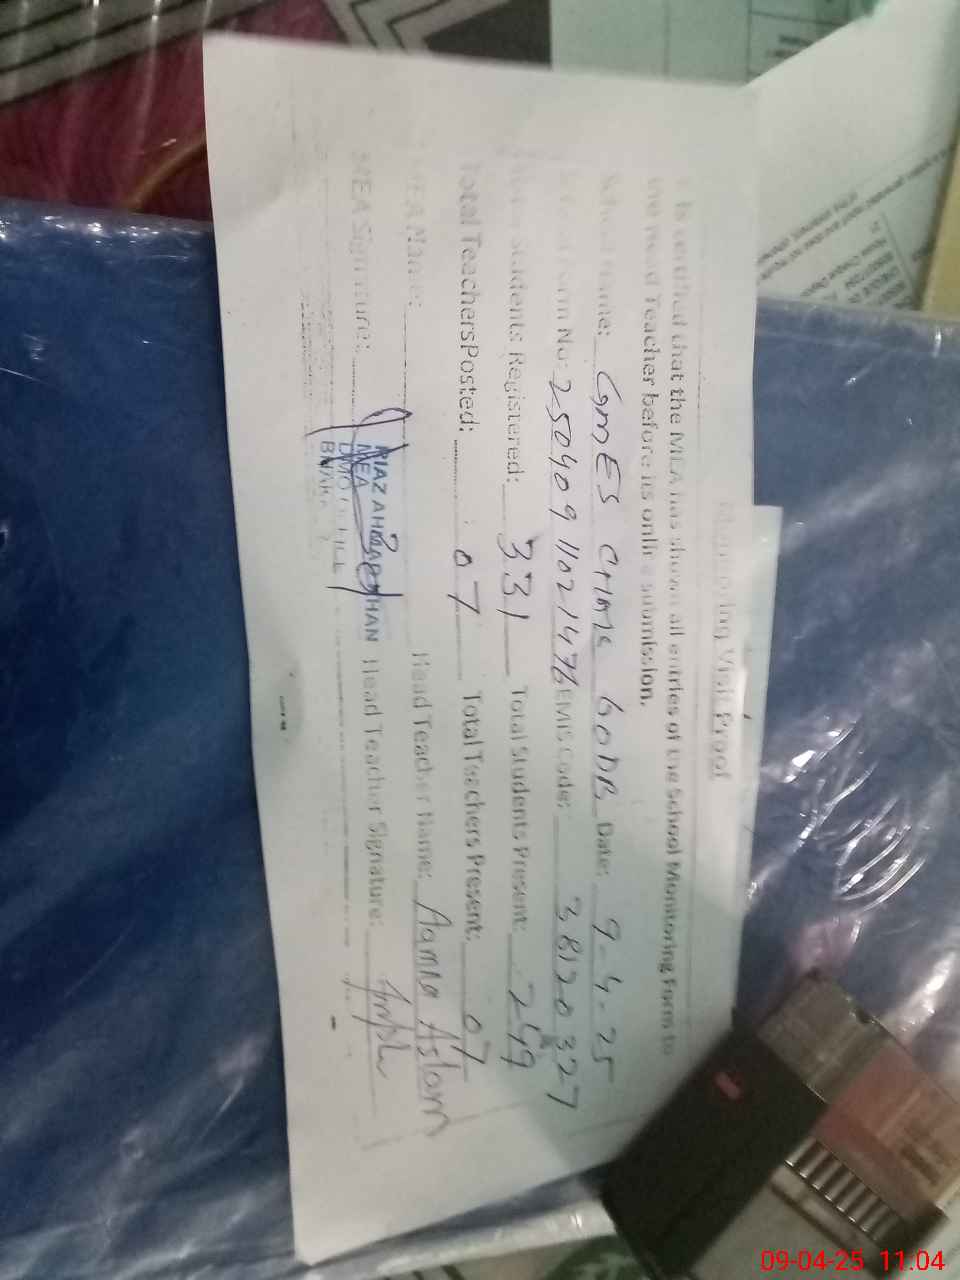 Monitoring Visit Proof
It is certified that the MEA has shown all entries of the School Monitoring Form to
the Head Teacher before its online submission.
School Name: GMES CHAK 60DB Date: 9-4-25
Form No: 25040911021476 EMIS Code: 38120327
Students Registered: 331 Total Students Present: 249
Total Teachers Posted: 07 Total Teachers Present: 07
MEA Name: Head Teacher Name: Aamna Aslam
MEA Signature: Head Teacher Signature:
RIAZ AHMAD KHAN
MEA
09-04-25 11:04